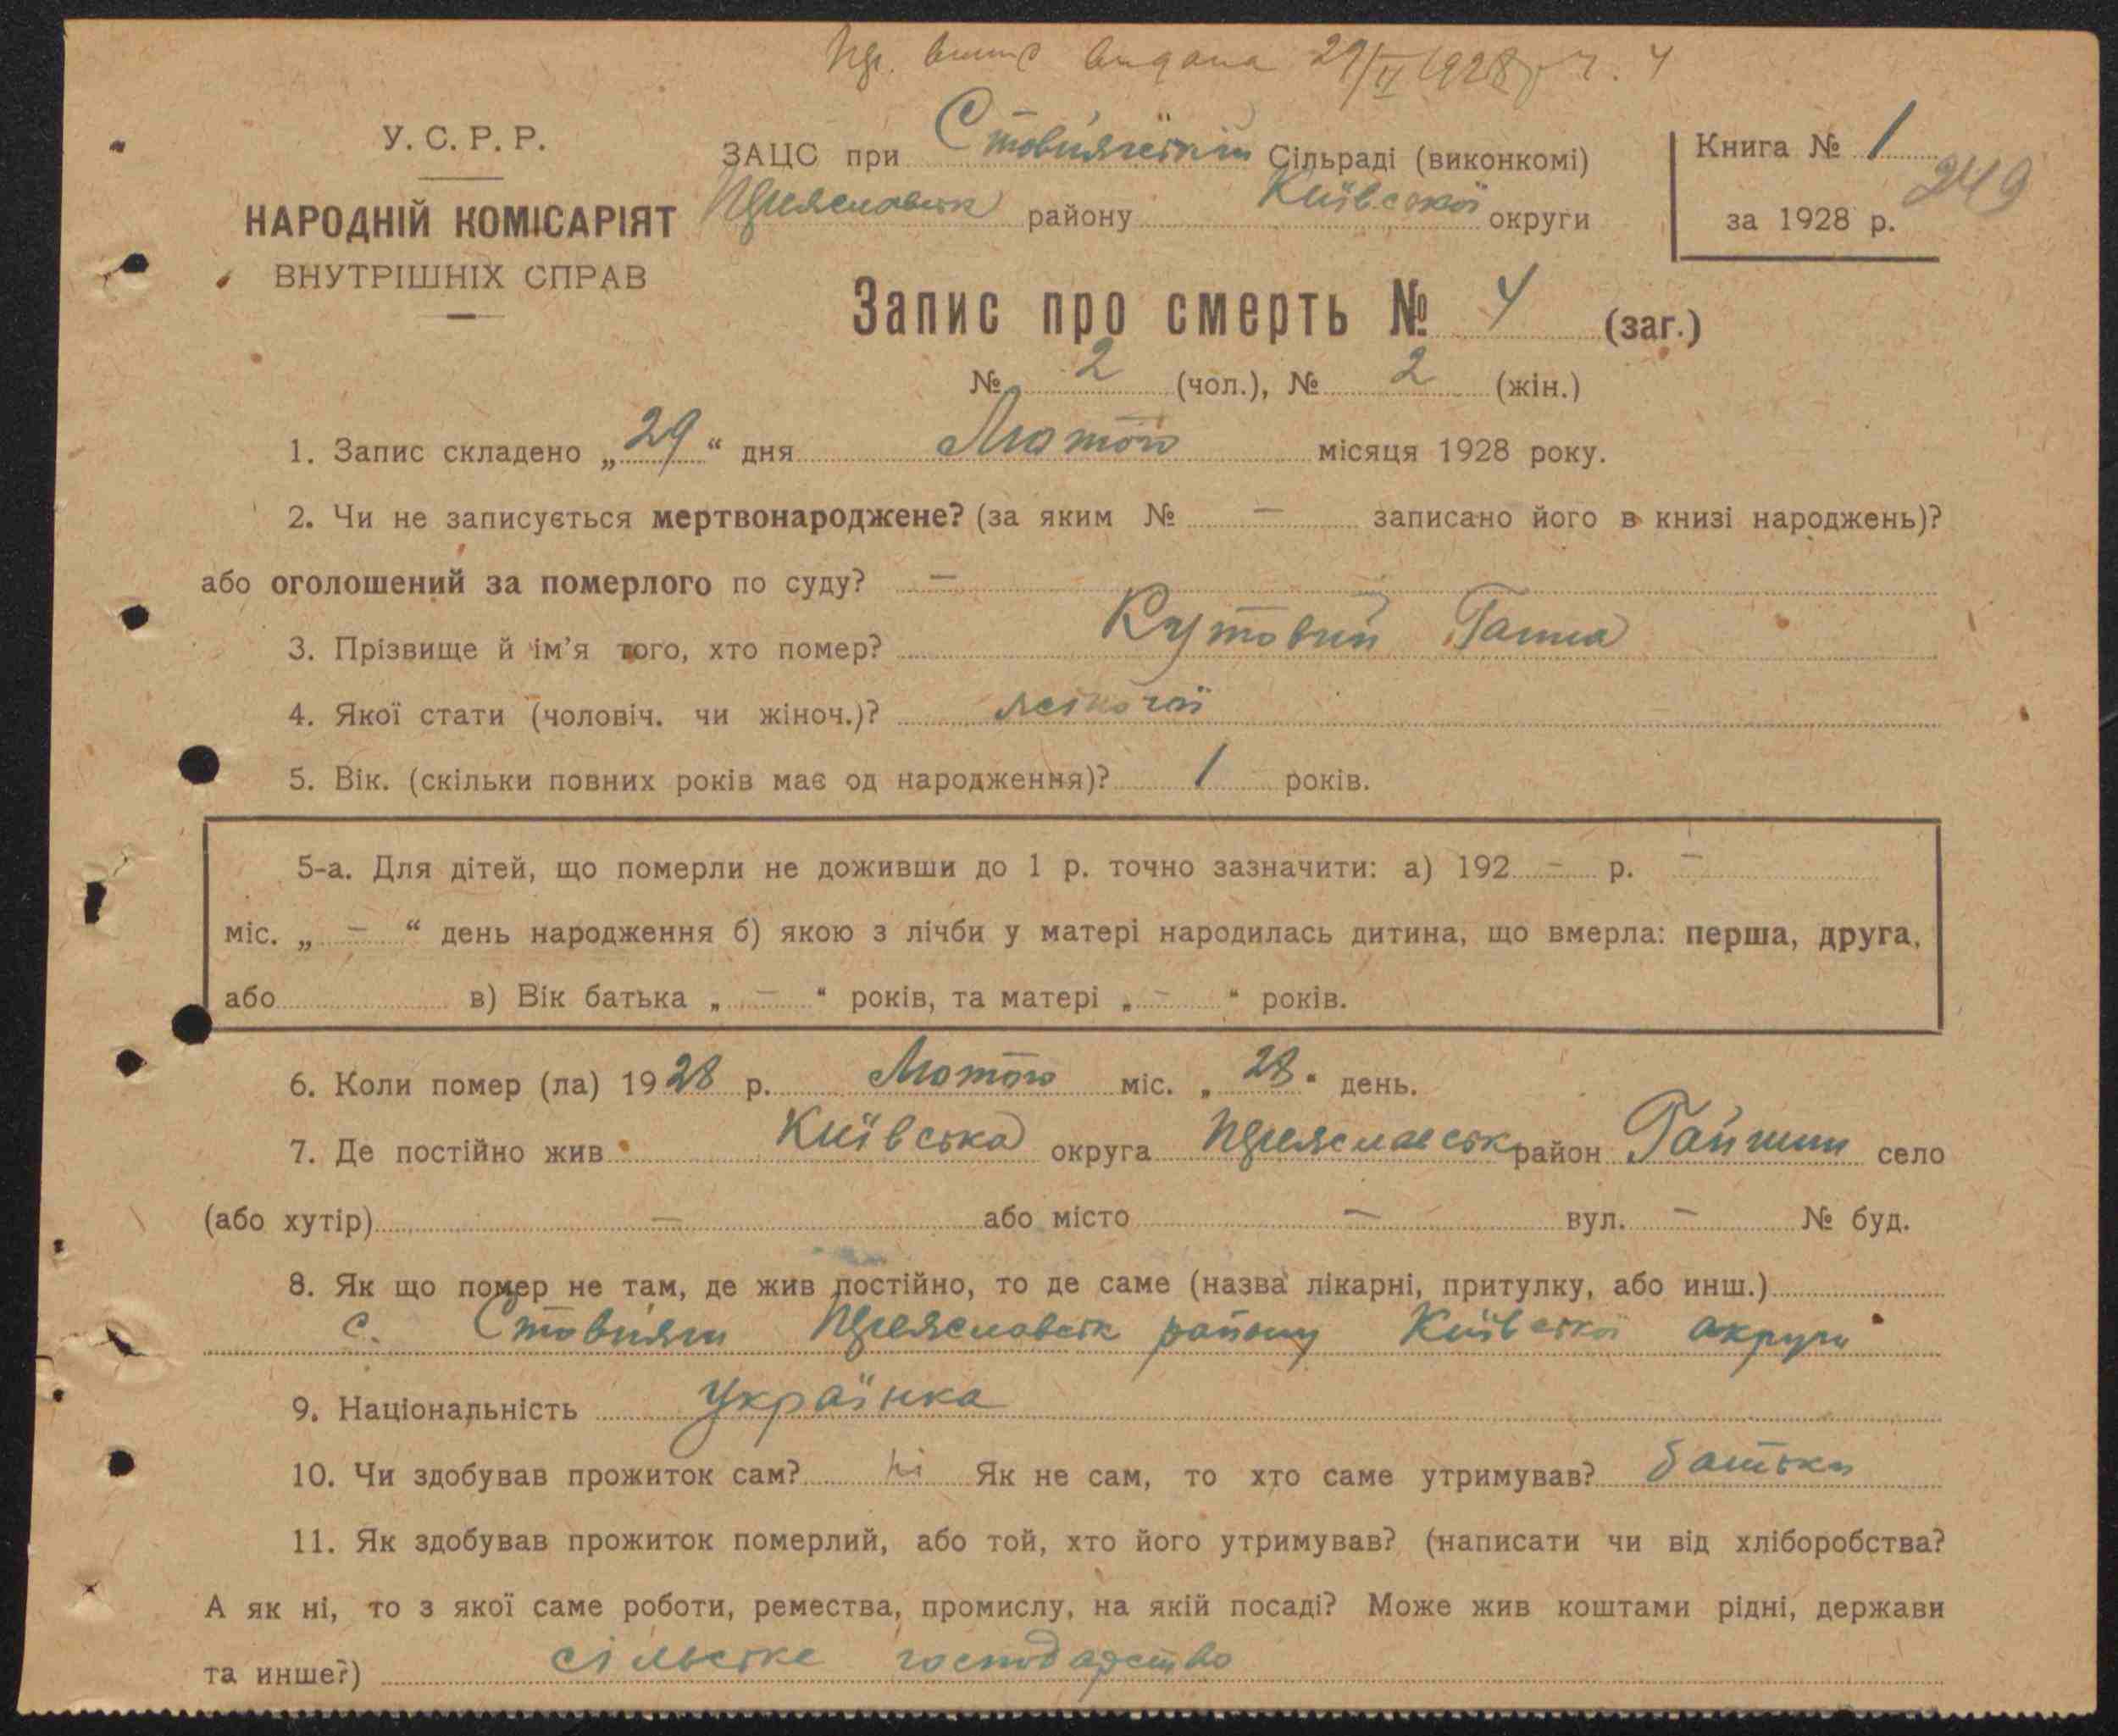 видана 29/II 1928 р. ч. 4
У. С. Р. Р.
НАРОДНІЙ КОМІСАРІЯТ
ВНУТРІШНІХ СПРАВ
ЗАЦС при Стовпягській Сільраді (виконкомі)
району Київської округи
Книга № 1
249
за 1928 р.
Запис про смерть № 4 (заг.)
№ 2 (чол.), № 2 (жін.)
1. Запис складено „29“ дня Лютого місяця 1928 року.
2. Чи не записується мертвонароджене? (за яким № — записано його в книзі народжень)?
або оголошений за померлого по суду? —
3. Прізвище й ім'я того, хто помер? Кутовий Ганна
4. Якої стати (чоловіч. чи жіноч.)? жіночої
5. Вік. (скільки повних років має од народження)? 1 років.
5-а. Для дітей, що померли не доживши до 1 р. точно зазначити: а) 192 — р. —
міс. „ — “ день народження б) якою з лічби у матері народилась дитина, що вмерла: перша, друга,
або в) Вік батька „ — “ років, та матері „ — “ років.
6. Коли помер (ла) 1928 р. Лютого міс. „28“ день.
7. Де постійно жив Київська округа Переяславськ район Гайшин село
(або хутір) — або місто — вул. — № буд.
8. Як що помер не там, де жив постійно, то де саме (назва лікарні, притулку, або инш.)
с. Стовпяги Переяславськ району Київської округи
9. Національність Українка
10. Чи здобував прожиток сам? ні Як не сам, то хто саме утримував? батьки
11. Як здобував прожиток померлий, або той, хто його утримував? (написати чи від хліборобства?
А як ні, то з якої саме роботи, ремества, промислу, на якій посаді? Може жив коштами рідні, держави
та инше?) сільське господарство